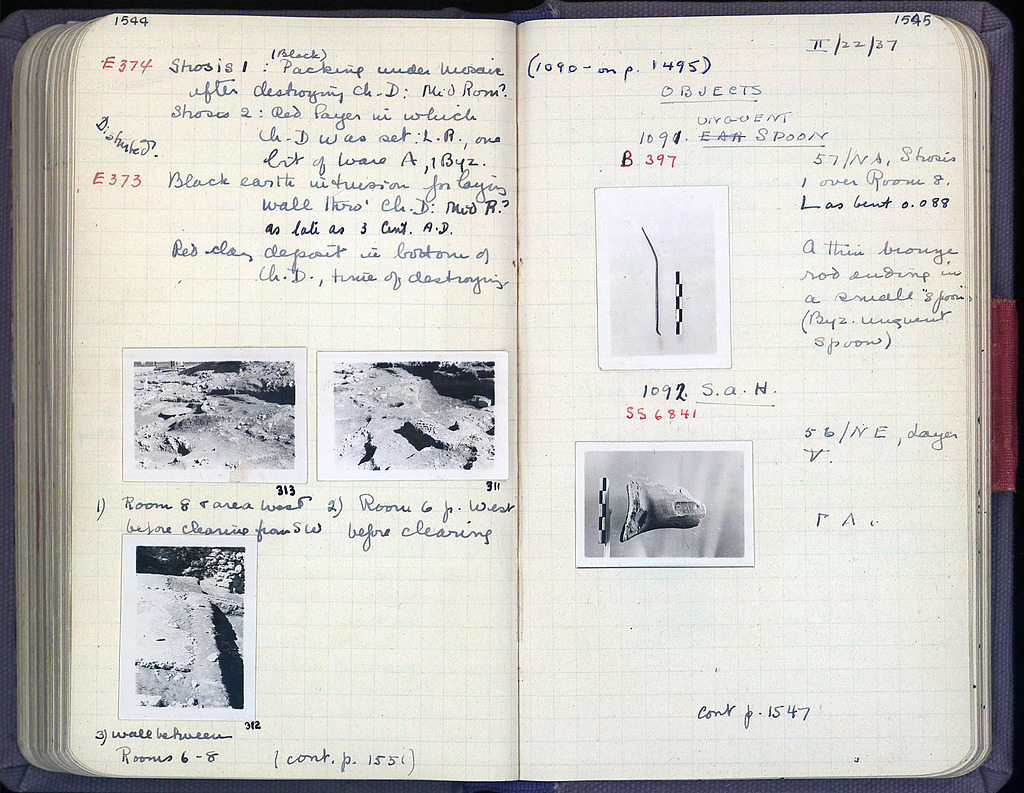 1544
(Black)
E374 Strosis 1 : Packing under Mosaic
after destroying Ch. D: Mid Rom?
Strosis 2 : Red layer in which
Disturbed?
Ch. D was set: L.R., one
bit of ware A, 1 Byz.
E373 Black earth intrusion for laying
wall thro' Ch. D: Mid R.?
as late as 3 Cent. A.D.
Red clay deposit in bottom of
Ch. D., time of destroying
313
311
1) Room 8 + area West
before clearing from SW
2) Room 6 p. West
before clearing
312
3) wall between
Rooms 6-8
(cont. p. 1551)
1545
II/22/37
(1090 - on p. 1495)
OBJECTS
UNGUENT
1091. EAR SPOON
B 397
57/NA, Strosis
1 over Room 8.
L as bent 0.088
A thin bronze
rod ending in
a small "spoon"
(Byz. unguent
spoon)
1092. S.A.H.
SS 6841
56/NE, Layer
V.
Γ Α .
cont p. 1547